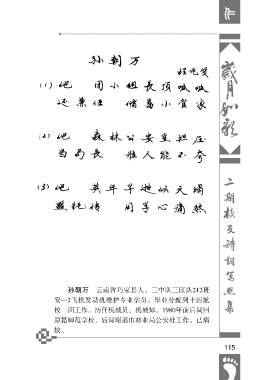 孙 朝 万
(1) 他 团 小 组 长 顶 呱 呱
还 兼 任 储 易 小 管 家
(2) 他 森 林 公 安 重 担 压
当 局 长 谁 人 能 不 夸
(3) 他 英 年 早 逝 似 天 塌
同 学 心 痛 煞
岁月如歌
二期校友诗词写照集
孙朝万 云南省巧家县人。三中队三区队212班
安—2飞机发动机维护专业学员。毕业分配到十四航
校一团工作。历任机械员、机械师。1980年前后调回
原籍师范学校。后调昭通市林业局公安处工作。已病
故。
115